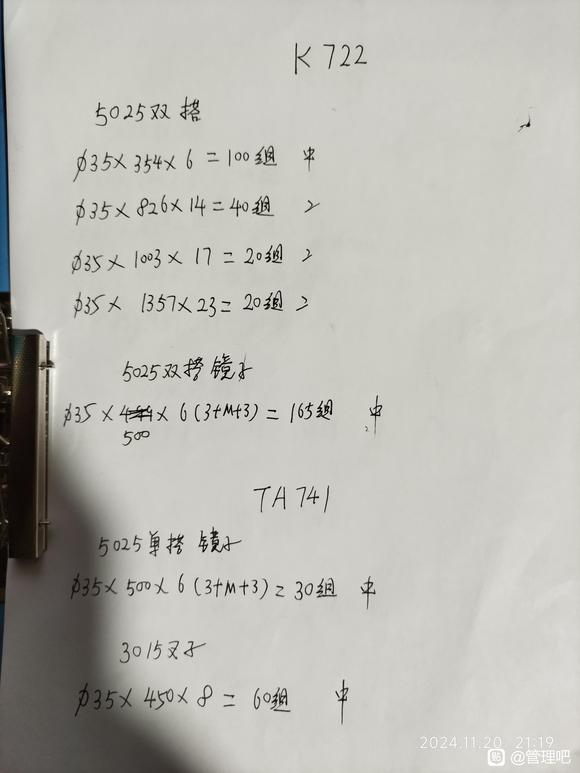 K 722
5025双搭
φ35×354×6=100组 中
φ35×826×14=40组 2
φ35×1003×17=20组 2
φ35×1357×23=20组 2
5025双搭镜子
φ35××6(3+M+3)=165组 中
500
TA741
5025单搭镜子
φ35×500×6(3+M+3)=30组 中
3015叉子
φ35×450×8=60组 中
2024.11.20 21:19
贴 @管理吧